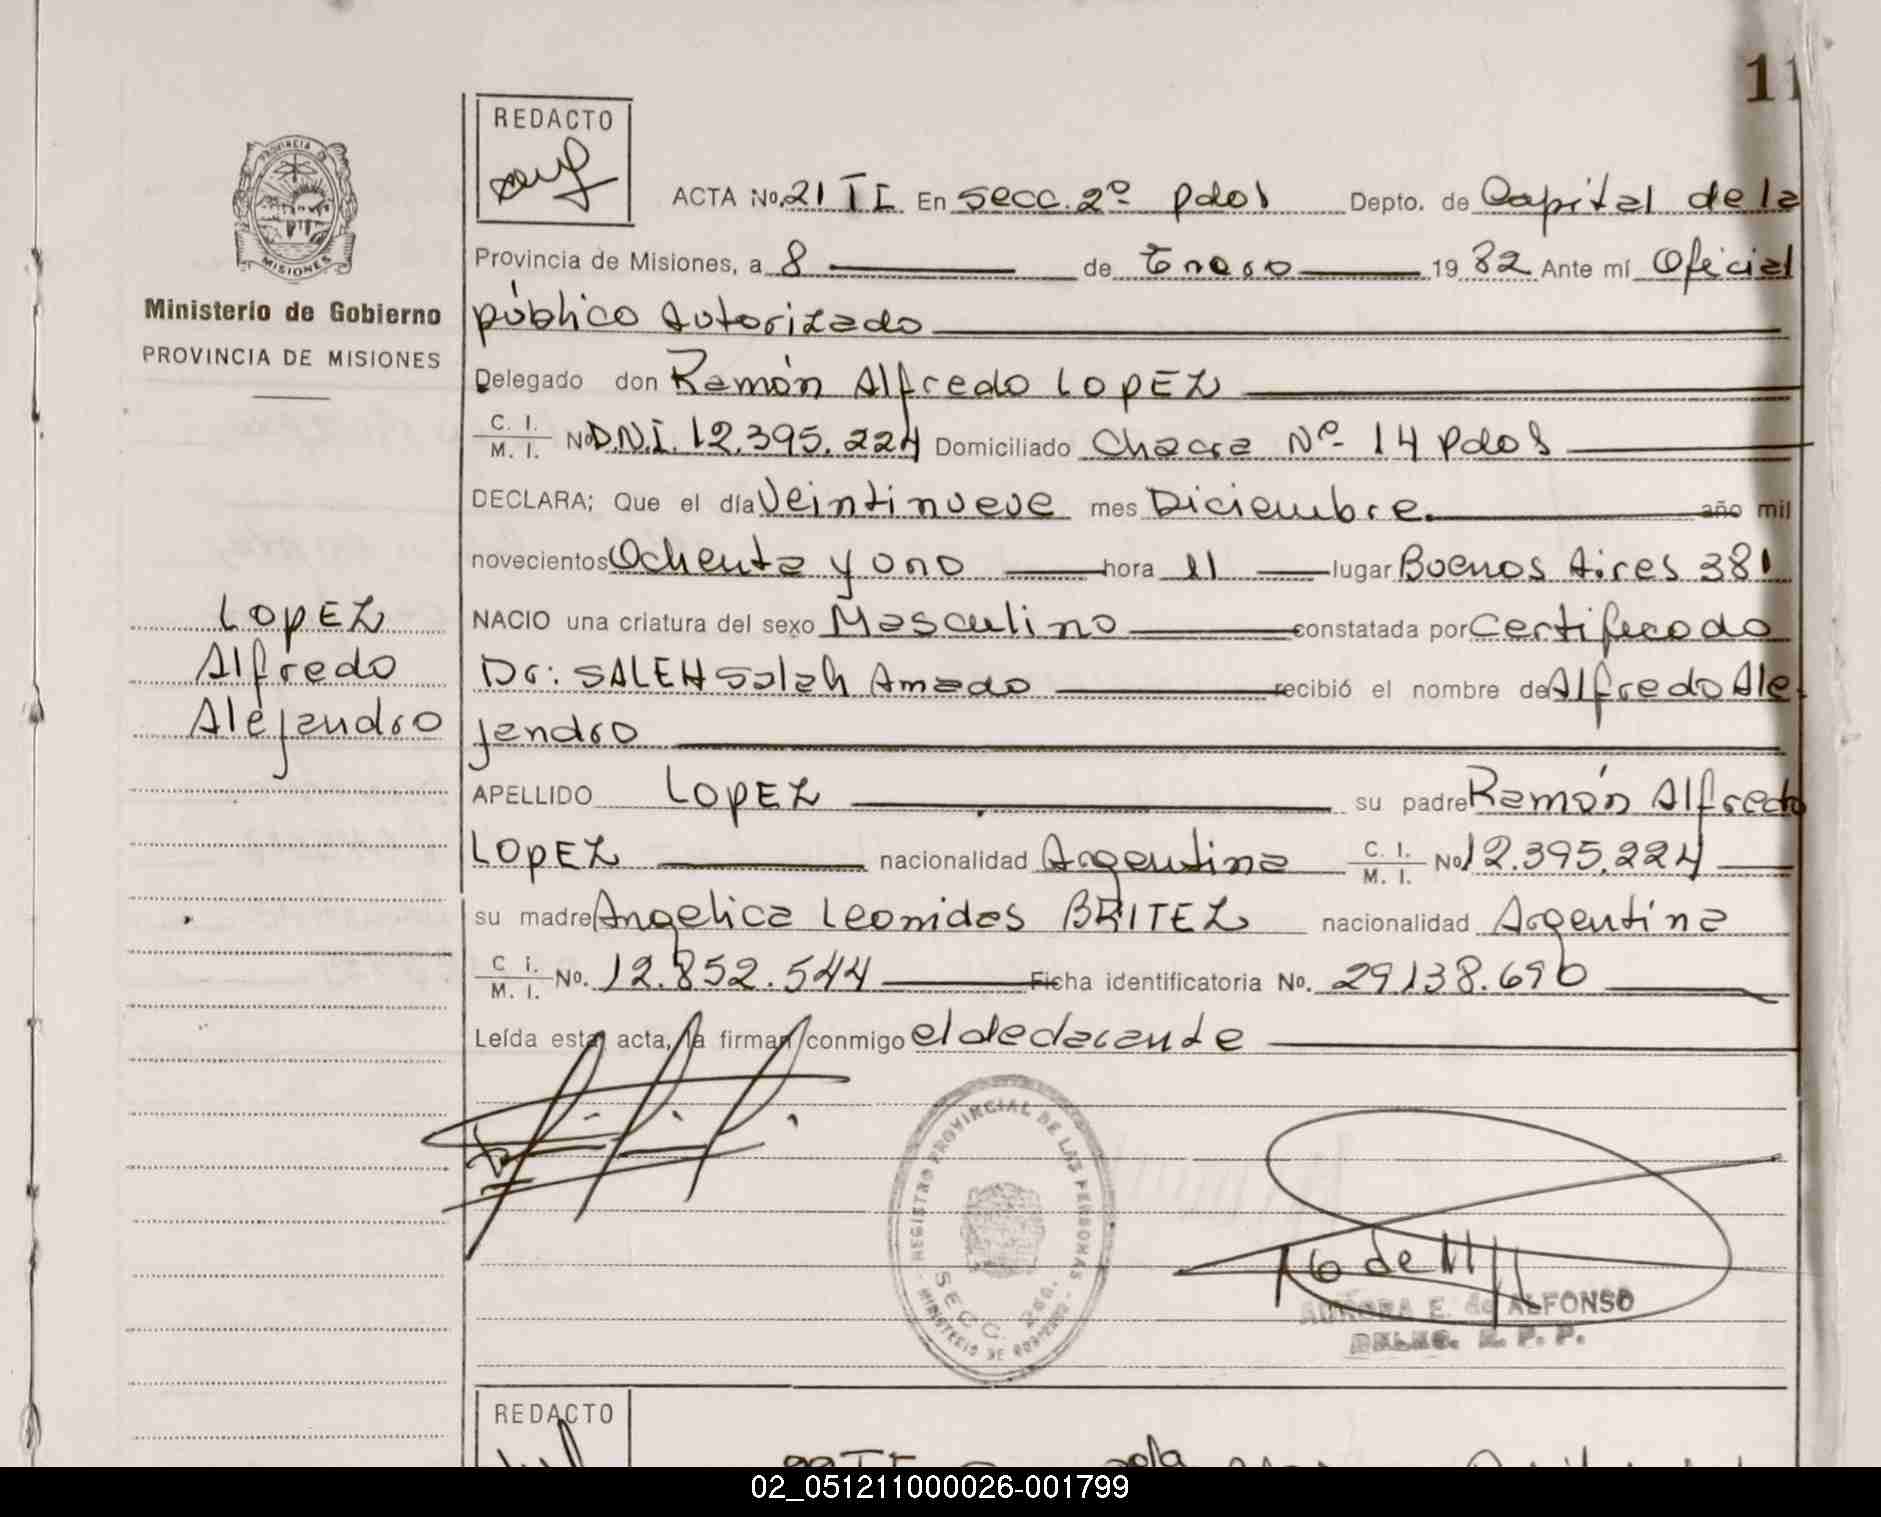 11
REDACTO
ACTA No. 21 TI En Secc. 2º Pdos Depto. de Capital de la
Provincia de Misiones, a 8 de Enero 19 82 Ante mí Oficial
público Autorizado
Delegado don Ramón Alfredo LOPEZ
C. I. / M. I. Nº D.N.I. 12.395.224 Domiciliado Chacra Nº 14 Pdos
DECLARA; Que el día Veintinueve mes Diciembre. año mil
novecientos Ochenta y uno hora 11 lugar Buenos Aires 381
NACIO una criatura del sexo Masculino constatada por Certificado
Dr: SALEH Salah Amado recibió el nombre de Alfredo Ale-
jandro
APELLIDO LOPEZ su padre Ramón Alfredo
LOPEZ nacionalidad Argentina C. I. / M. I. Nº 12.395.224
su madre Angelica Leonidas BRITEZ nacionalidad Argentina
C i. / M. I. No. 12.852.544 Ficha identificatoria No. 29138.690
Leída esta acta, la firman conmigo el declarante
PROVINCIA
MISIONES
Ministerio de Gobierno
PROVINCIA DE MISIONES
LOPEZ
Alfredo
Alejandro
REGISTRO PROVINCIAL DE LAS PERSONAS
SECC. 2da.
MINISTERIO DE GOBIERNO
AURORA E. de ALFONSO
DELEG. R. P. P.
REDACTO
02_051211000026-001799